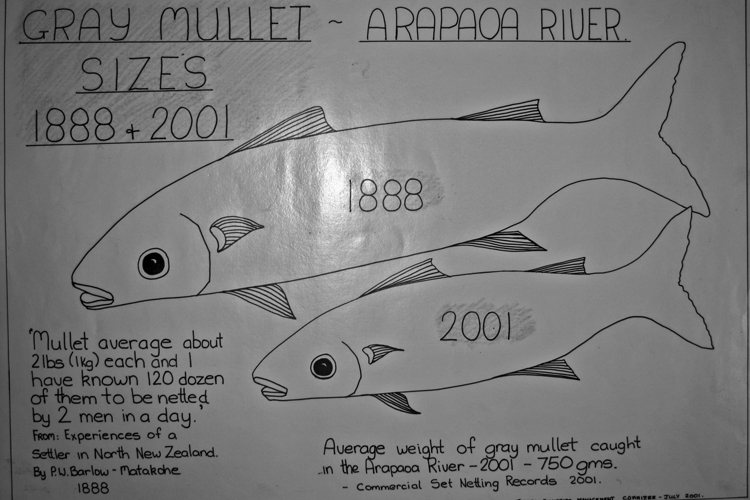 GRAY MULLET ~ ARAPAOA RIVER.
SIZES
1888 + 2001
1888
2001
'Mullet average about
2lbs (1kg) each and I
have known 120 dozen
of them to be netted
by 2 men in a day.'
From: Experiences of a
Settler in North New Zealand.
By P.W. Barlow - Matakohe
1888
Average weight of gray mullet caught
in the Arapaoa River - 2001 - 750 gms.
- Commercial Set Netting Records 2001.
MANAGEMENT COMMITTEE - JULY 2001.